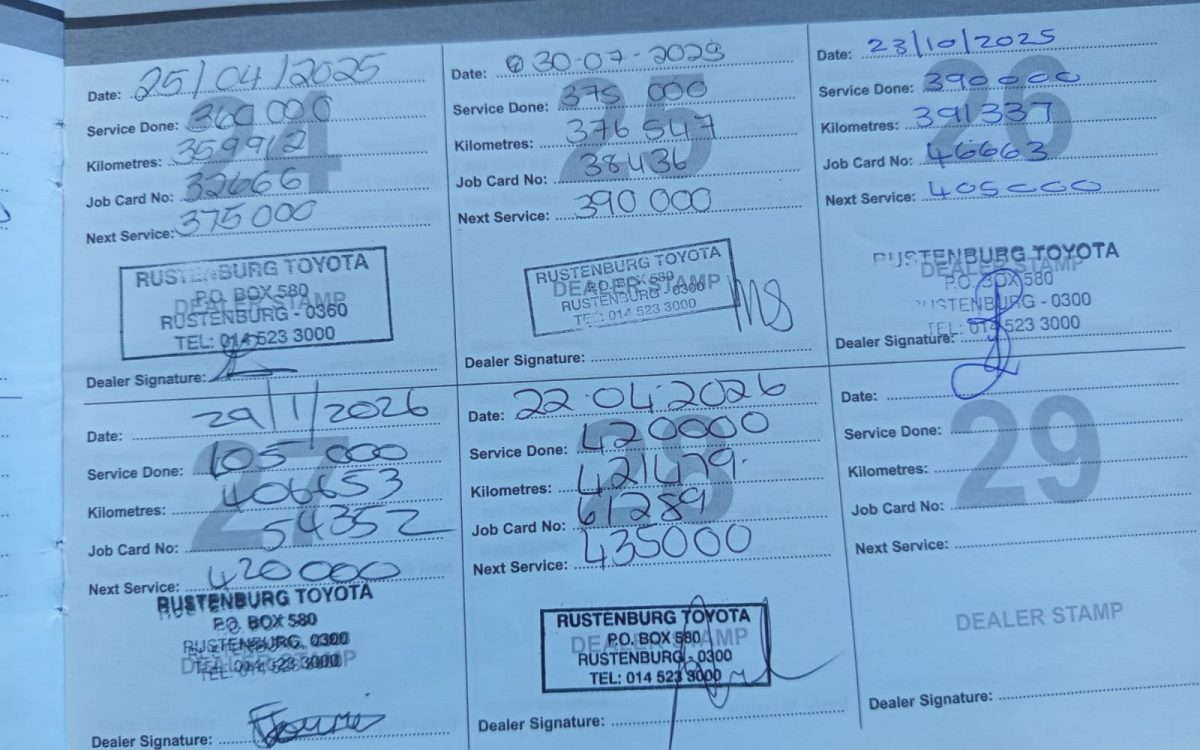 24
Date: 25/04/2025
Service Done: 360 000
Kilometres: 359912
Job Card No: 32666
Next Service: 375 000
RUSTENBURG TOYOTA
P.O. BOX 580
DEALER STAMP
RUSTENBURG - 0360
TEL: 014 523 3000
Dealer Signature:
25
Date: 30-07-2025
Service Done: 375 000
Kilometres: 376 547
Job Card No: 38436
Next Service: 390 000
RUSTENBURG TOYOTA
P.O. BOX 580
DEALER STAMP
RUSTENBURG - 0300
TEL: 014 523 3000
Dealer Signature:
26
Date: 23/10/2025
Service Done: 390000
Kilometres: 391337
Job Card No: 46663
Next Service: 405000
RUSTENBURG TOYOTA
DEALER STAMP
P.O. BOX 580
RUSTENBURG - 0300
TEL: 014 523 3000
Dealer Signature:
27
Date: 29/1/2026
Service Done: 105 000
Kilometres: 406653
Job Card No: 54352
Next Service: 420000
RUSTENBURG TOYOTA
P.O. BOX 580
RUSTENBURG, 0300
DEALER STAMP
TEL: 014 523 3000
Dealer Signature:
28
Date: 22.04.2026
Service Done: 420000
Kilometres: 421479
Job Card No: 61289
Next Service: 435000
RUSTENBURG TOYOTA
P.O. BOX 580
DEALER STAMP
RUSTENBURG - 0300
TEL: 014 523 3000
Dealer Signature:
29
Date:
Service Done:
Kilometres:
Job Card No:
Next Service:
DEALER STAMP
Dealer Signature: